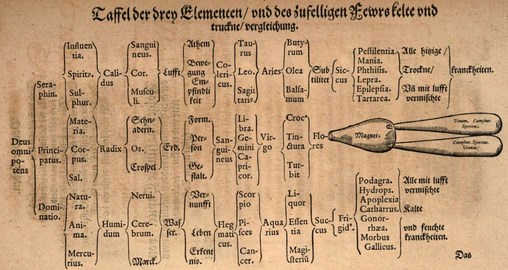 Taffel der drey Elementen / und des zufelligen Fewrs kelte und
truckne / vergleichung.
Deus omni potens
Seraphin.
Principatus.
Dominatio.
Influentia.
Spiritꝰ.
Sulphur.
Materia.
Corpus.
Sal.
Natura.
Anima.
Mercurius.
Calidus
Radix
Humidum
Sanguineus.
Cor.
Musculi.
Os.
Nervi.
Cerebrum.
Marck.
Lufft
Erd.
Wasser.
Athem
Bewegung
Empfindlikeit
Form.
Person
Gestalt.
Vernunfft
Leben
Colericus.
Sanguineus
Flegmaticus.
Taurus
Leo.
Sagittariꝰ
Libra.
Gemini
Capricor.
Scorpio
Pisces
Cancer.
Aries
Virgo
Aquarius
Butyrum
Olea
Balsamum
Crocꝰ
Tinctur
Turbit
Liquor
Essentia
Magisteriū
Subtilitet
Flores
Succus
Siccus
Frigidꝰ.
Pestilentia.
Mania.
Phthisis.
Lepra.
Epilepsia.
Tartarea.
Alle hitzige /
Trockne /
Uñ mit lufft
vermischte
kranckheiten.
Magnet.
Podagra.
Hydrops.
Apoplexia
Catharrus.
Gonorrhœa.
Morbus
Gallicus.
Alle mit lufft
vermischte
Kalte
und feuchte
kranckheiten.
Das